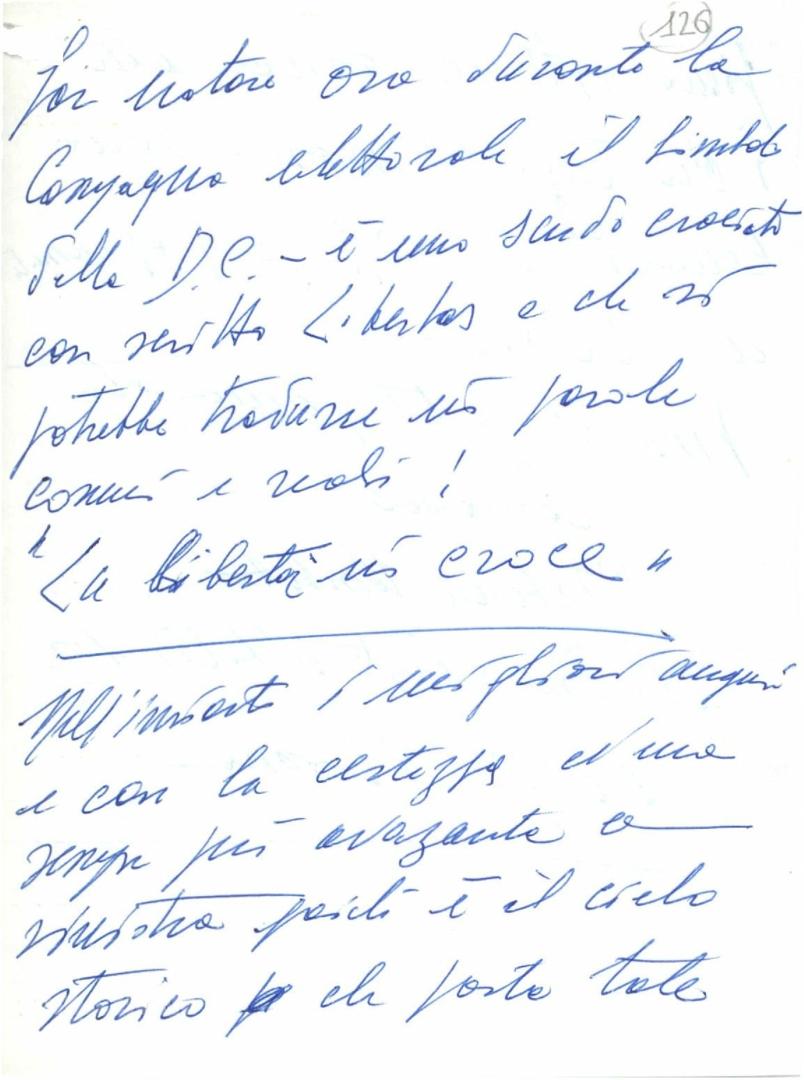 126
far notare ora durante la
Campagna elettorale il simbolo
della D.C. - è uno scudo crociato
con scritto Libertas e che si
potrebbe tradurre in parole
comuni e reali!
"La libertà in croce"
Nell'inviarti i migliori auguri
e con la certezza d'una
sempre più avanzante a
sinistra poiché è il ciclo
storico che porta tale